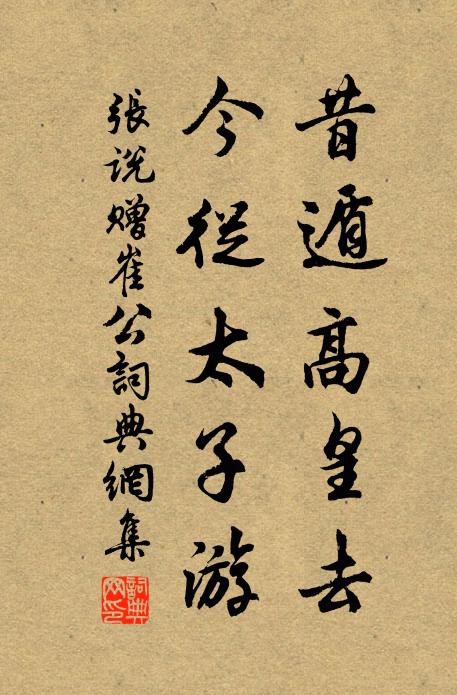 昔遁高皇去
今從太子游
張說贈崔公詞典網集
詞典網印